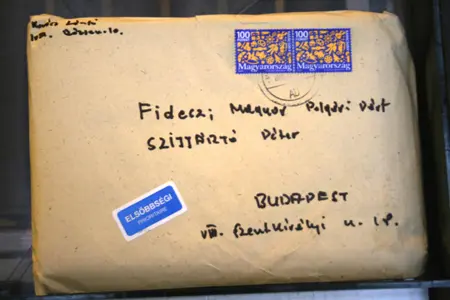 Kovács
VIII.
100
100
Magyarország
Magyarország
Fidesz; Magyar Polgári Párt
SZIJJÁRTÓ Péter
ELSŐBBSÉGI
PRIORITAIRE
BUDAPEST
VIII. Szentkirályi u. 18.